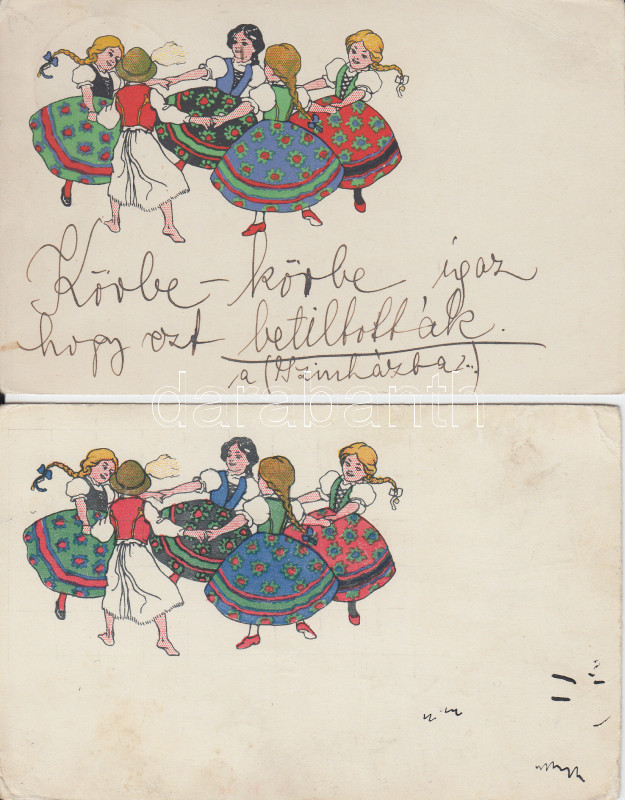 Körbe - körbe igaz
hogy ezt betiltották.
a (Szinházba..)
darabanth